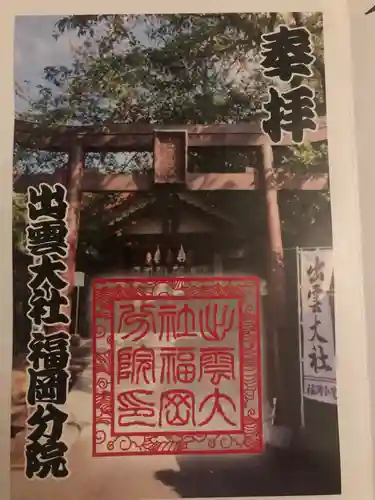 奉拝
出雲大社福岡分院
出雲大
社福岡
分院印
出雲大社
福岡分院